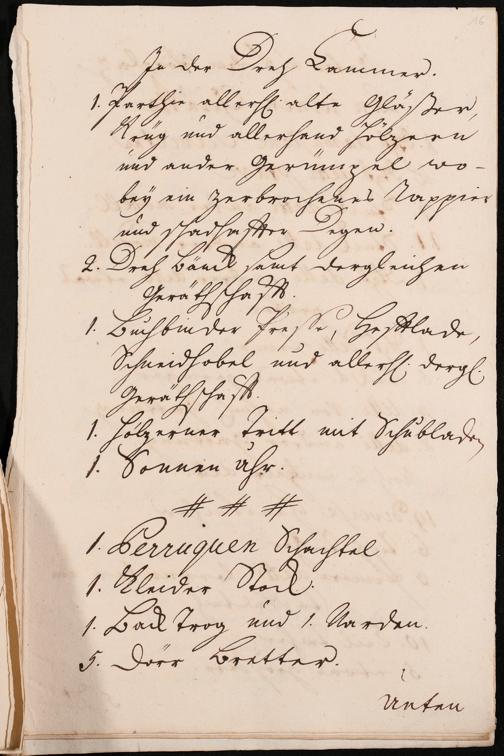 16
In der Dreh Cammer.
1. Parthie allerhl. alte Gläßer,
Krüg und allerhand höltzern
und ander Gerümpel wo-
bey ein zerbrochenes Rappier
und schadhaffter Degen.
2. Dreh Bänck samt dergleichen
Geräthschafft.
1. Buchbinder Presse, Hefftlade,
Schneidhobel und allerhl. dergl.
Geräthschafft.
1. höltzerner Tritt mit Schubladen
1. Sonnen Uhr.
# # #
1. Perruquen Schachtel
1. Kleider Stock.
1. Back Trog und 1. Narden.
5. Dörr Bretter.
Unten